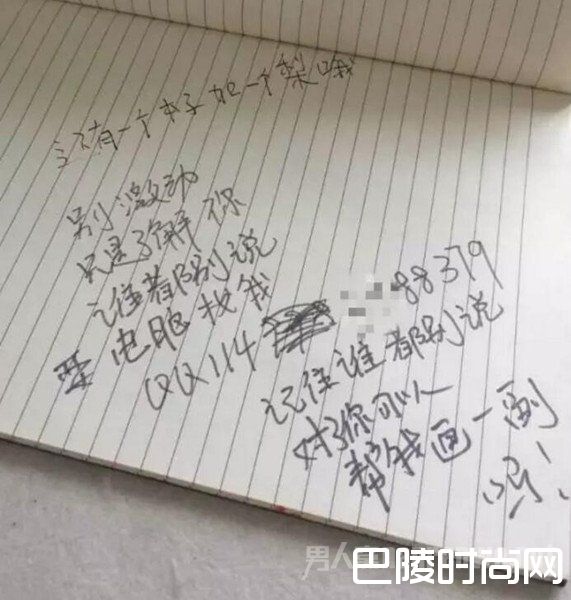 还有一个本子加一个梨哦
别激动
只是了解你
谁都别说
要电脑找我
QQ114 88379
记住谁都别说
对了你可以
帮我画一副
吗!
男人
巴陵时尚网